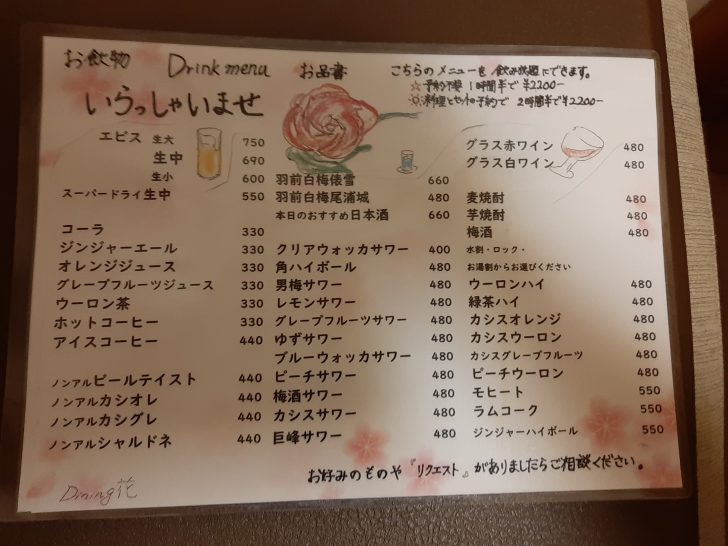 お飲物 Drink menu お品書
いらっしゃいませ
こちらのメニューを 飲み放題にできます。
☆予約不要 1時間半で¥2200-
☆料理とセットの予約で 2時間半で¥2200-
エビス 生大 750
生中 690
生小 600
スーパードライ生中 550
コーラ 330
ジンジャーエール 330
オレンジジュース 330
グレープフルーツジュース 330
ウーロン茶 330
ホットコーヒー 330
アイスコーヒー 440
ノンアルビールテイスト 440
ノンアルカシオレ 440
ノンアルカシグレ 440
ノンアルシャルドネ 440
羽前白梅俵雪 660
羽前白梅尾浦城 480
本日のおすすめ日本酒 660
クリアウォッカサワー 400
角ハイボール 480
男梅サワー 480
レモンサワー 480
グレープフルーツサワー 480
ゆずサワー 480
ブルーウォッカサワー 480
ピーチサワー 480
梅酒サワー 480
カシスサワー 480
巨峰サワー 480
グラス赤ワイン 480
グラス白ワイン 480
麦焼酎 480
芋焼酎 480
梅酒 480
水割・ロック・
お湯割からお選びください
ウーロンハイ 480
緑茶ハイ 480
カシスオレンジ 480
カシスウーロン 480
カシスグレープフルーツ 480
ピーチウーロン 480
モヒート 550
ラムコーク 550
ジンジャーハイボール 550
お好みのものや『リクエスト』がありましたらご相談ください。
Dining花